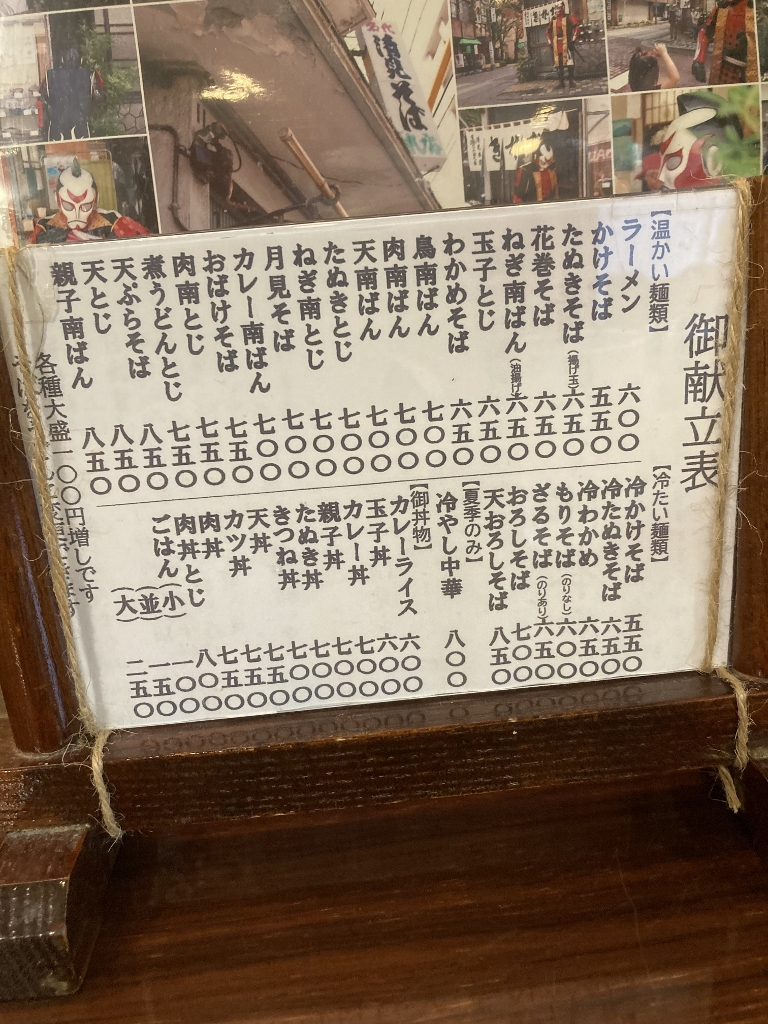 御献立表
【温かい麺類】
ラーメン 六〇〇
かけそば 五五〇
たぬきそば(揚げ玉) 六五〇
花巻そば 六五〇
ねぎ南ばん(油揚げ) 六五〇
玉子とじ 六五〇
わかめそば 六五〇
鳥南ばん 七〇〇
肉南ばん 七〇〇
天南ばん 七〇〇
たぬきとじ 七〇〇
ねぎ南とじ 七〇〇
月見そば 七〇〇
カレー南ばん 七〇〇
おばけそば 七五〇
肉南とじ 七五〇
煮うどんとじ 七五〇
天ぷらそば 八五〇
天とじ 八五〇
親子南ばん 八五〇
各種大盛一〇〇円増しです
【冷たい麺類】
冷かけそば 五五〇
冷たぬきそば 六五〇
冷わかめ 六五〇
もりそば(のりなし) 六〇〇
ざるそば(のりあり) 六五〇
おろしそば 七〇〇
天おろしそば 八五〇
【夏季のみ】
冷やし中華 八〇〇
【御丼物】
カレーライス 六〇〇
玉子丼 六〇〇
カレー丼 七〇〇
親子丼 七〇〇
たぬき丼 七〇〇
きつね丼 七〇〇
天丼 七五〇
カツ丼 七五〇
肉丼 七五〇
肉丼とじ 八〇〇
ごはん(小) 一〇〇
(並) 一五〇
(大) 二五〇